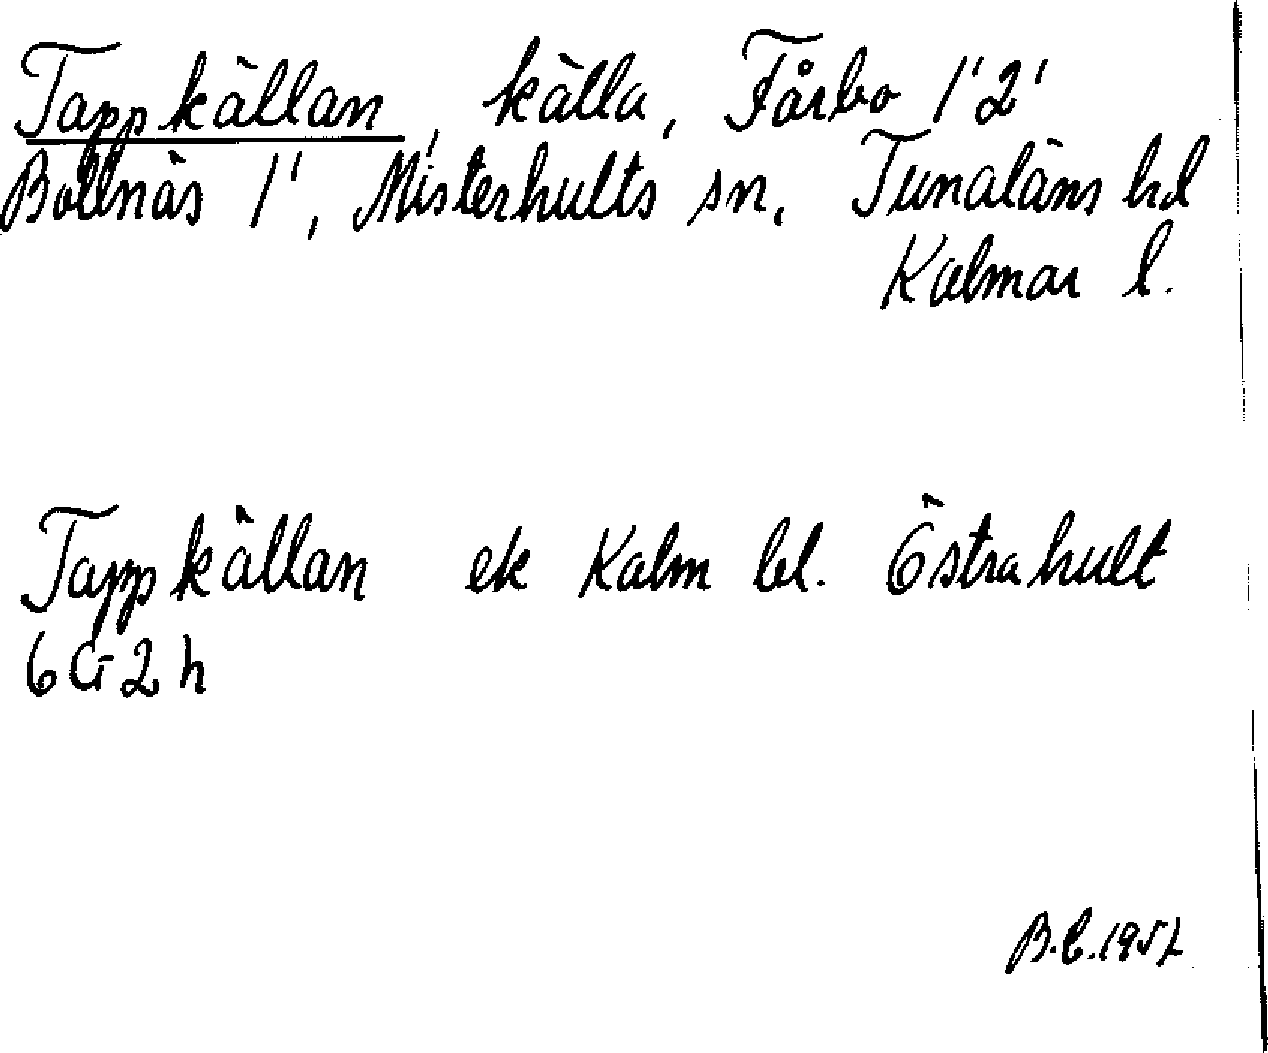 Tappkällan, källa, Fårbo 1'2'
Bollnäs 1', Misterhults sn, Tunaläns hd
Kalmar l.
Tappkällan ek Kalm bl. Östrahult
6G2h
B.C.1957